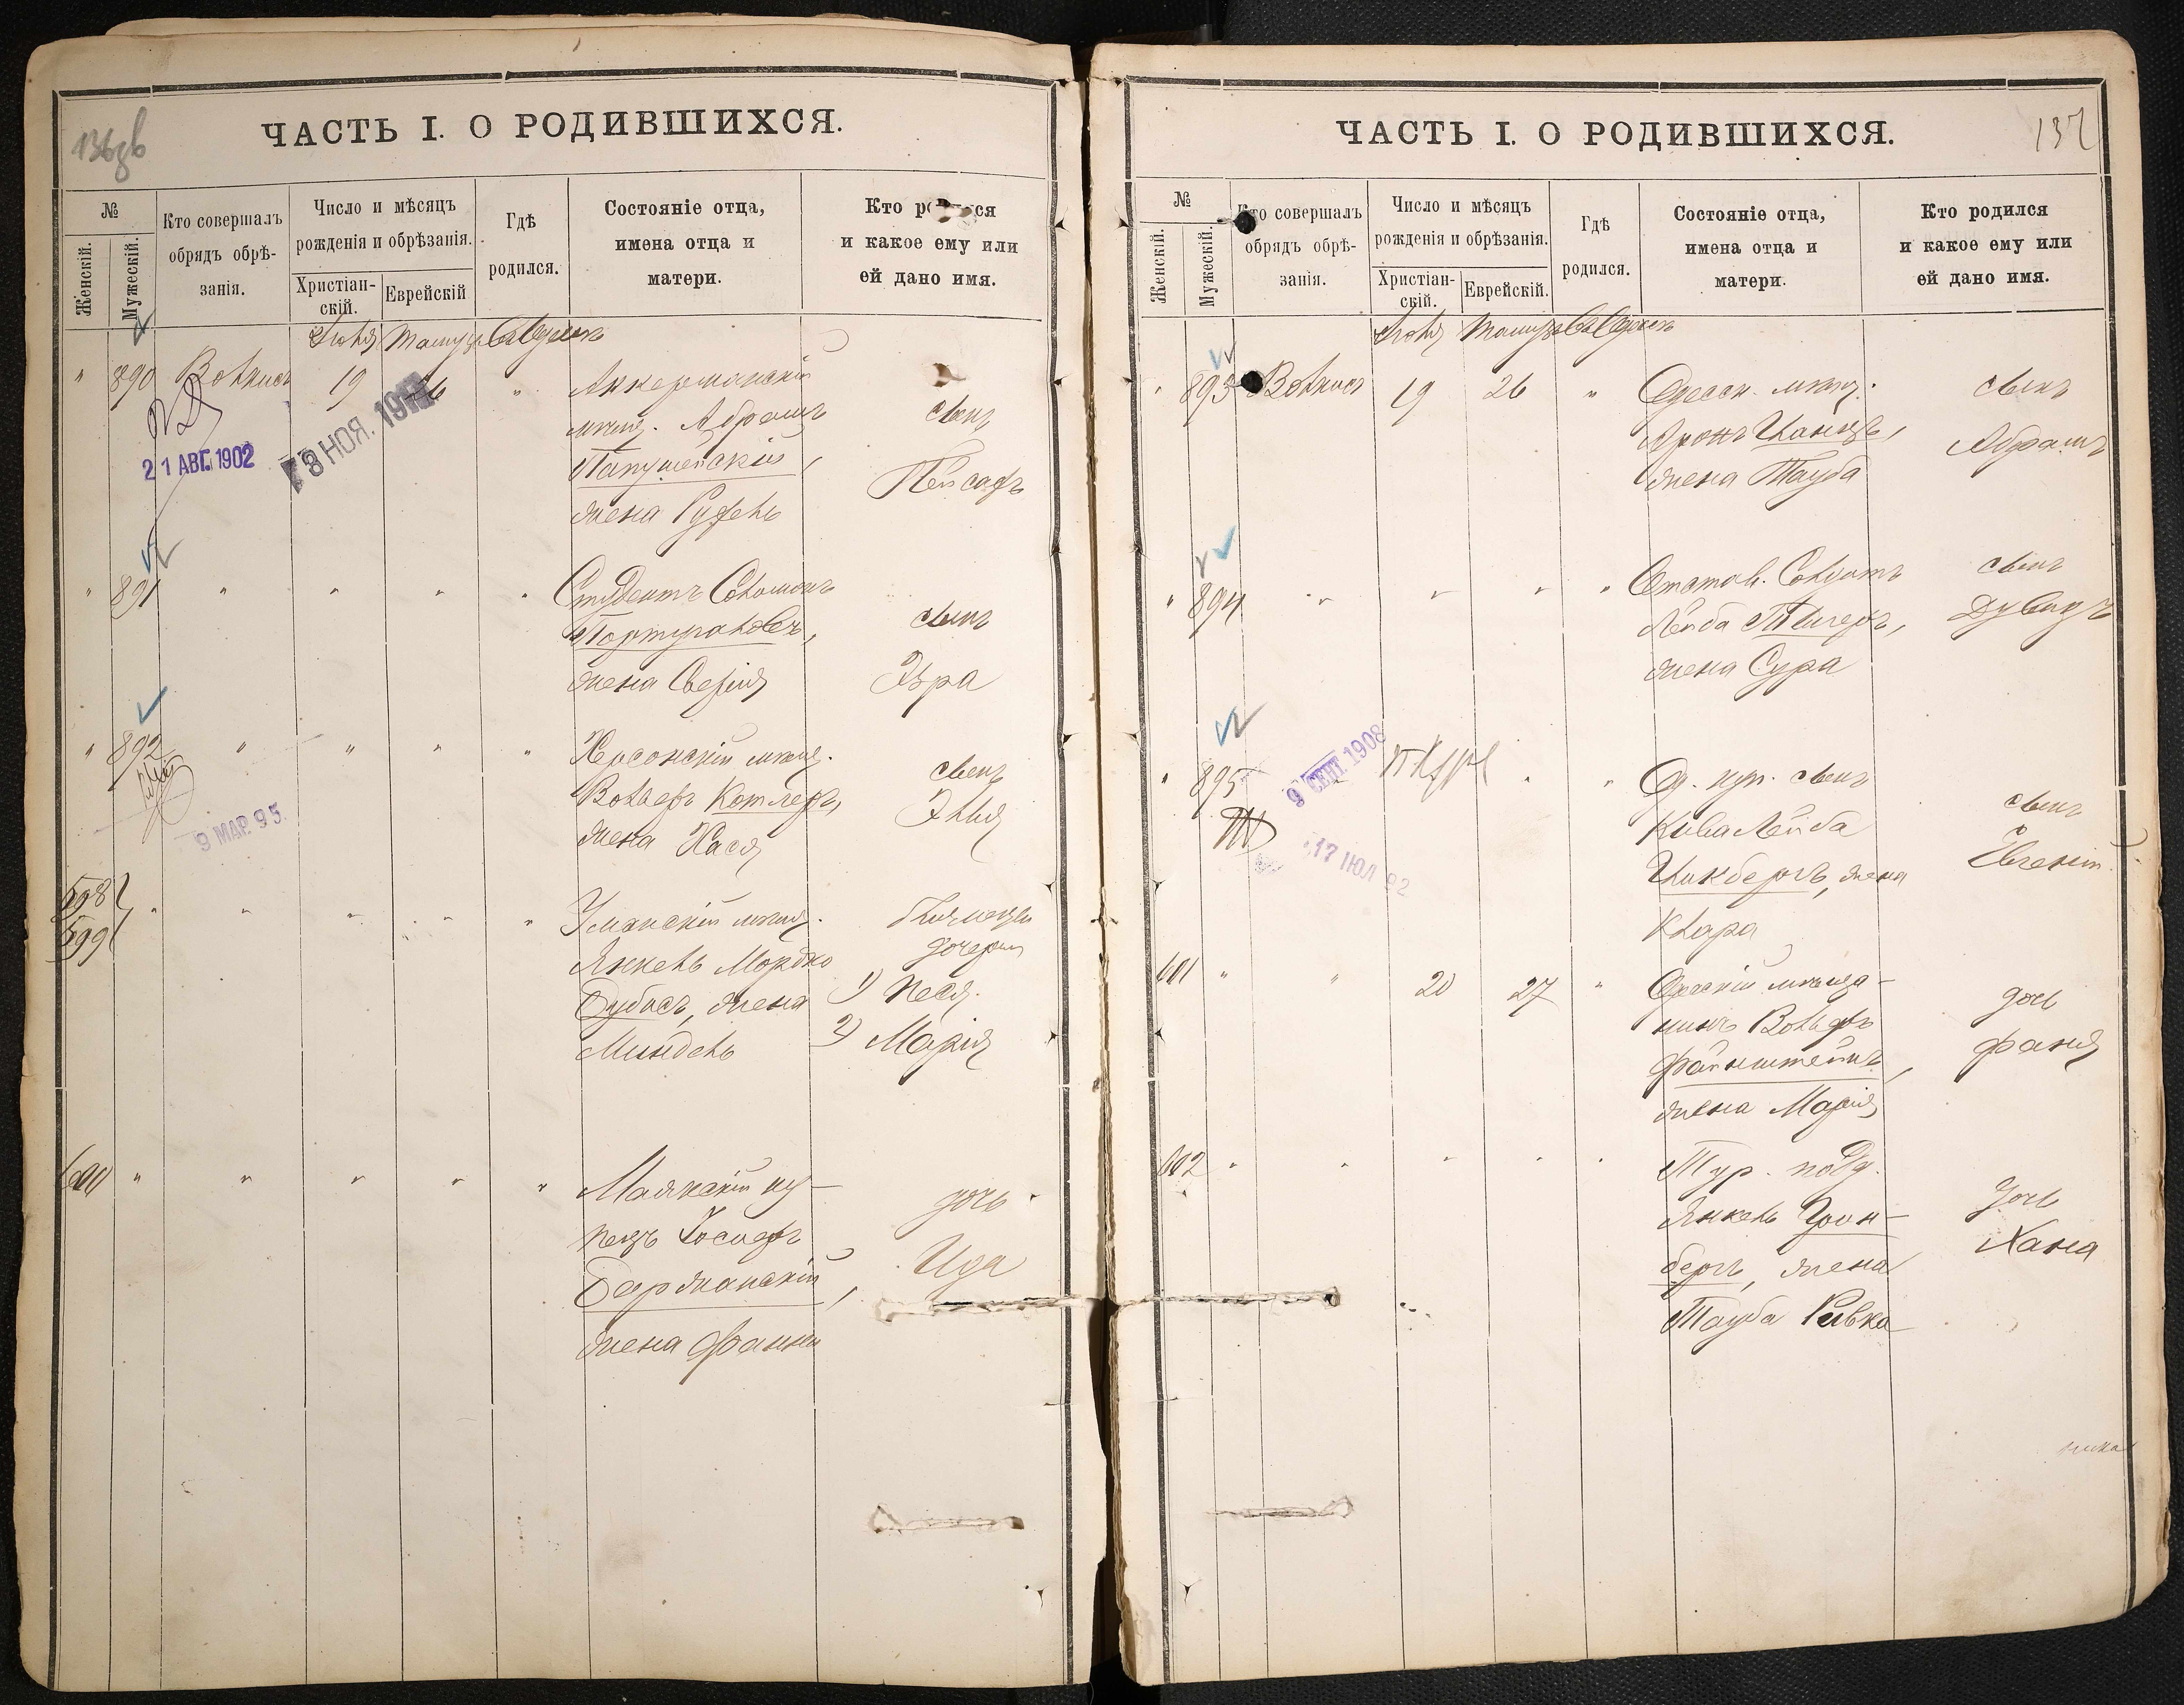 136об
ЧАСТЬ I. О РОДИВШИХСЯ.
№
Женскій.
Мужескій.
Кто совершалъ
обрядъ обрѣ-
занія.
Число и мѣсяцъ
рожденія и обрѣзанія.
Христіан-
скій.
Еврейскій
Гдѣ
родился.
Состояніе отца,
имена отца и
матери.
Кто ро ся
и какое ему или
ей дано имя.
въ Одессѣ
" 890
19
26
"
Аккерманскій
мѣщ. Абрамъ
Папушейскій,
жена Рухель
сынъ
Пейсахъ
21 АВГ. 1902
8 НОЯ.
" 891 " " " "
Студентъ Соломонъ
Португаловъ,
жена Софія
сынъ
Эзра
" 892 " " " "
Херсонскій мѣщ.
Вольфъ Котлеръ,
жена Хася
сынъ
Элья
9 МАР. 95.
598
599 " " " " "
Уманскій мѣщ.
Янкель Мордко
Бубисъ, жена
Миндель
близнецы
дочери
1) Песя.
2) Марія
600 " " " " "
Маякскій ку-
пецъ Іосифъ
Баржанскій,
жена Фанни
дочь
Ида
137
ЧАСТЬ I. О РОДИВШИХСЯ.
№
Женскій.
Мужескій.
Кто совершалъ
обрядъ обрѣ-
занія.
Число и мѣсяцъ
рожденія и обрѣзанія.
Христіан-
скій.
Еврейскій.
Гдѣ
родился.
Состояніе отца,
имена отца и
матери.
Кто родился
и какое ему или
ей дано имя.
въ Одессѣ
" 893
19
26
"
Одесск. мѣщ.
Аронъ Цанцъ,
жена Тауба
сынъ
Абрамъ
" 894 " " " "
Отстав. Солдатъ
Лейба Тигеръ,
жена Сура
сынъ
Дувидъ
" 895 " "
9 СЕНТ. 1908
17 ІЮЛ 92
Од. куп. сынъ
Кива Лейба
Цикбергъ, жена
Клара
сынъ
Евгеній
601 " "
20
27
"
Одесскій мѣща-
нинъ Вольфъ
Файнштейнъ,
жена Марія
дочь
Фаня
602 " " " " "
Тур. подд.
Янкель Грин-
бергъ, жена
Тауба Ривка
дочь
Хана